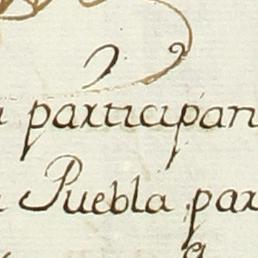 participan
Puebla par